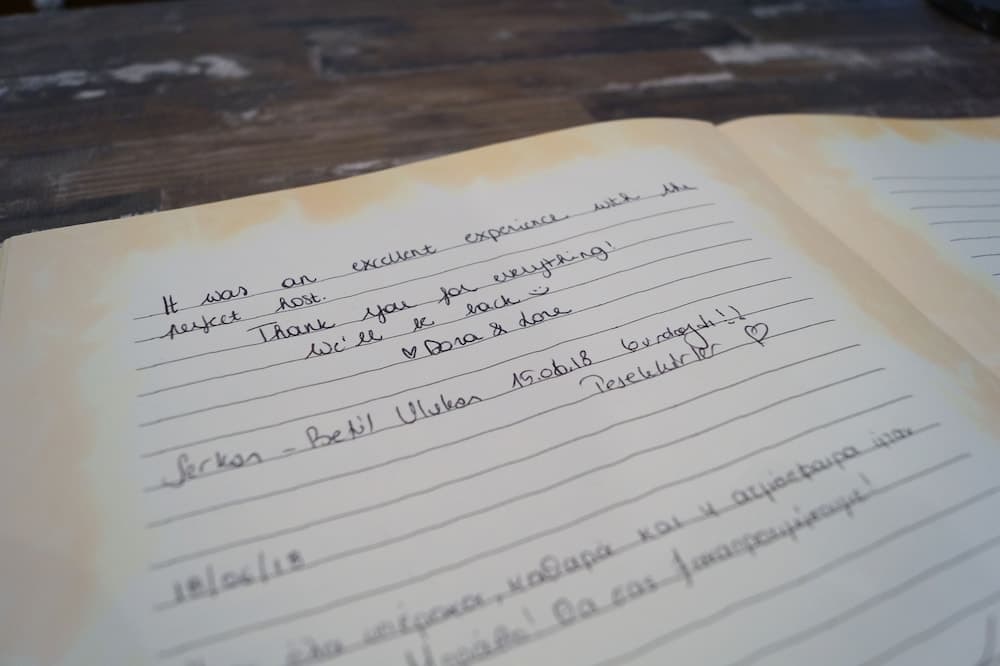 It was an excellent experience with the
perfect host.
Thank you for everything!
We'll be back :)
♡ Dora & Lore
Serkan - Betül Ulukan 15.06.18 burdaydı!!
Teşekkürler ♡
18/06/18
όλα υπέροχα, καθαρά και η ατμόσφαιρα ήταν
Μπράβο! Θα σας ξαναπροτιμήσουμε!